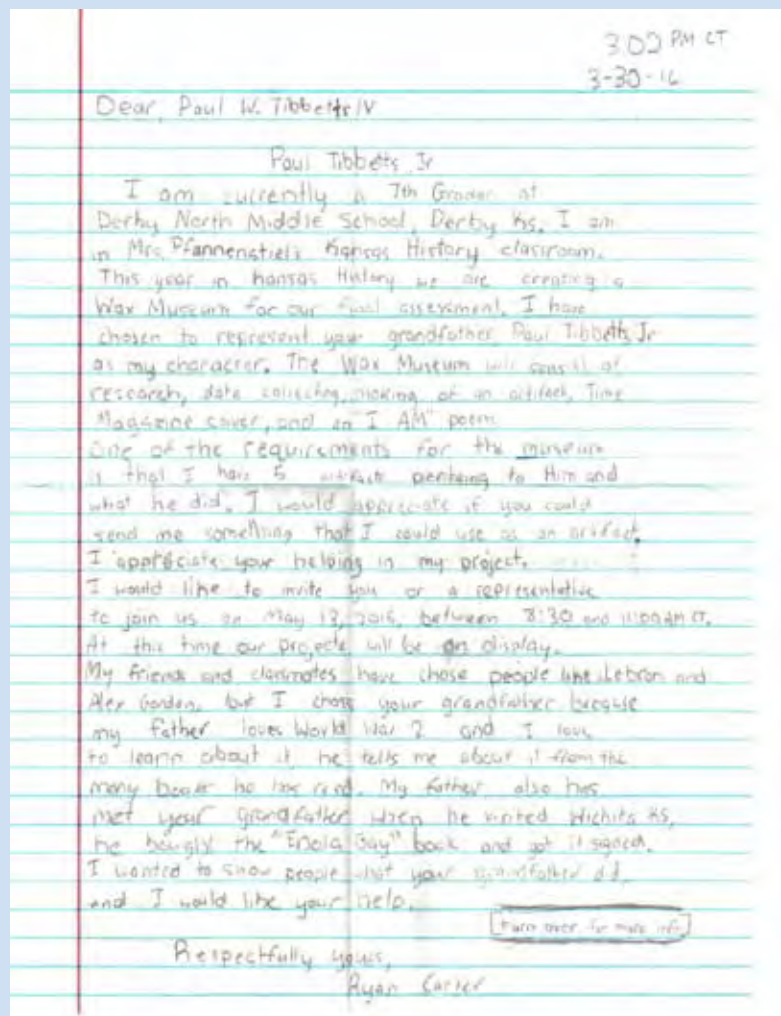 3:02 PM CT
3-30-16
Dear, Paul W. Tibbetts IV
Paul Tibbetts Jr
I am currently a 7th Grader at
Derby North Middle School, Derby Ks. I am
in Mrs. Pfannenstiel's Kansas History classroom.
This year in Kansas History we are creating a
Wax Museum for our final assessment. I have
chosen to represent your grandfather Paul Tibbetts Jr
as my character. The Wax Museum will consist of
research, date collecting, making of an artifact, Time
Magazine cover, and an I AM" poem
One of the requirements for the museum
is that I have 5 artifacts to Him and
what he did. I would appreciate if you could
send me something that I could use as an artifact.
I appreciate your helping in my project.
I would like to invite you or a representative
to join us on May 13, 2016, between 8:30 and 11:00 AM CT.
At this time our projects will be on display.
My friends and classmates have chose people like Lebron and
Alex Gordon, but I chose your grandfather because
my father loves World War 2 and I love
to learn about it, he tells me about it from the
many books he has read. My father also has
met your grandfather when he visited Wichita KS,
he bought the "Enola Gay" book and got it signed.
I wanted to show people what your grandfather did
and I would like your help.
turn over for more info
Respectfully yours,
Ryan Carter